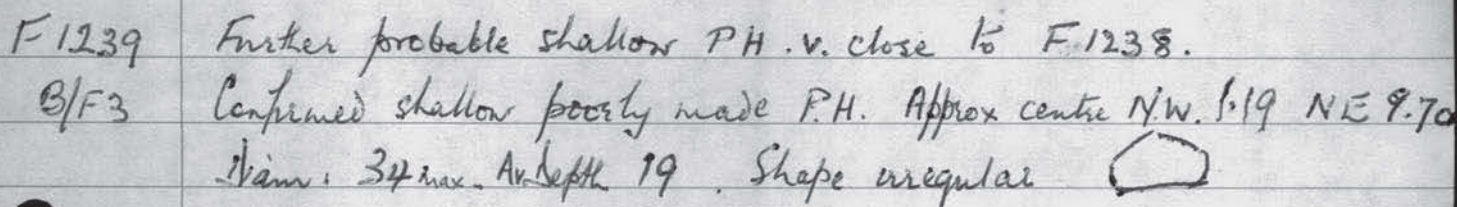 F1239 Further probable shallow PH . v. close to F.1238.
B/F3 Confirmed shallow poorly made P.H. Approx centre N.W. 1.19 NE 9.70
Diam. 34 max. Av. Depth 19 . Shape irregular